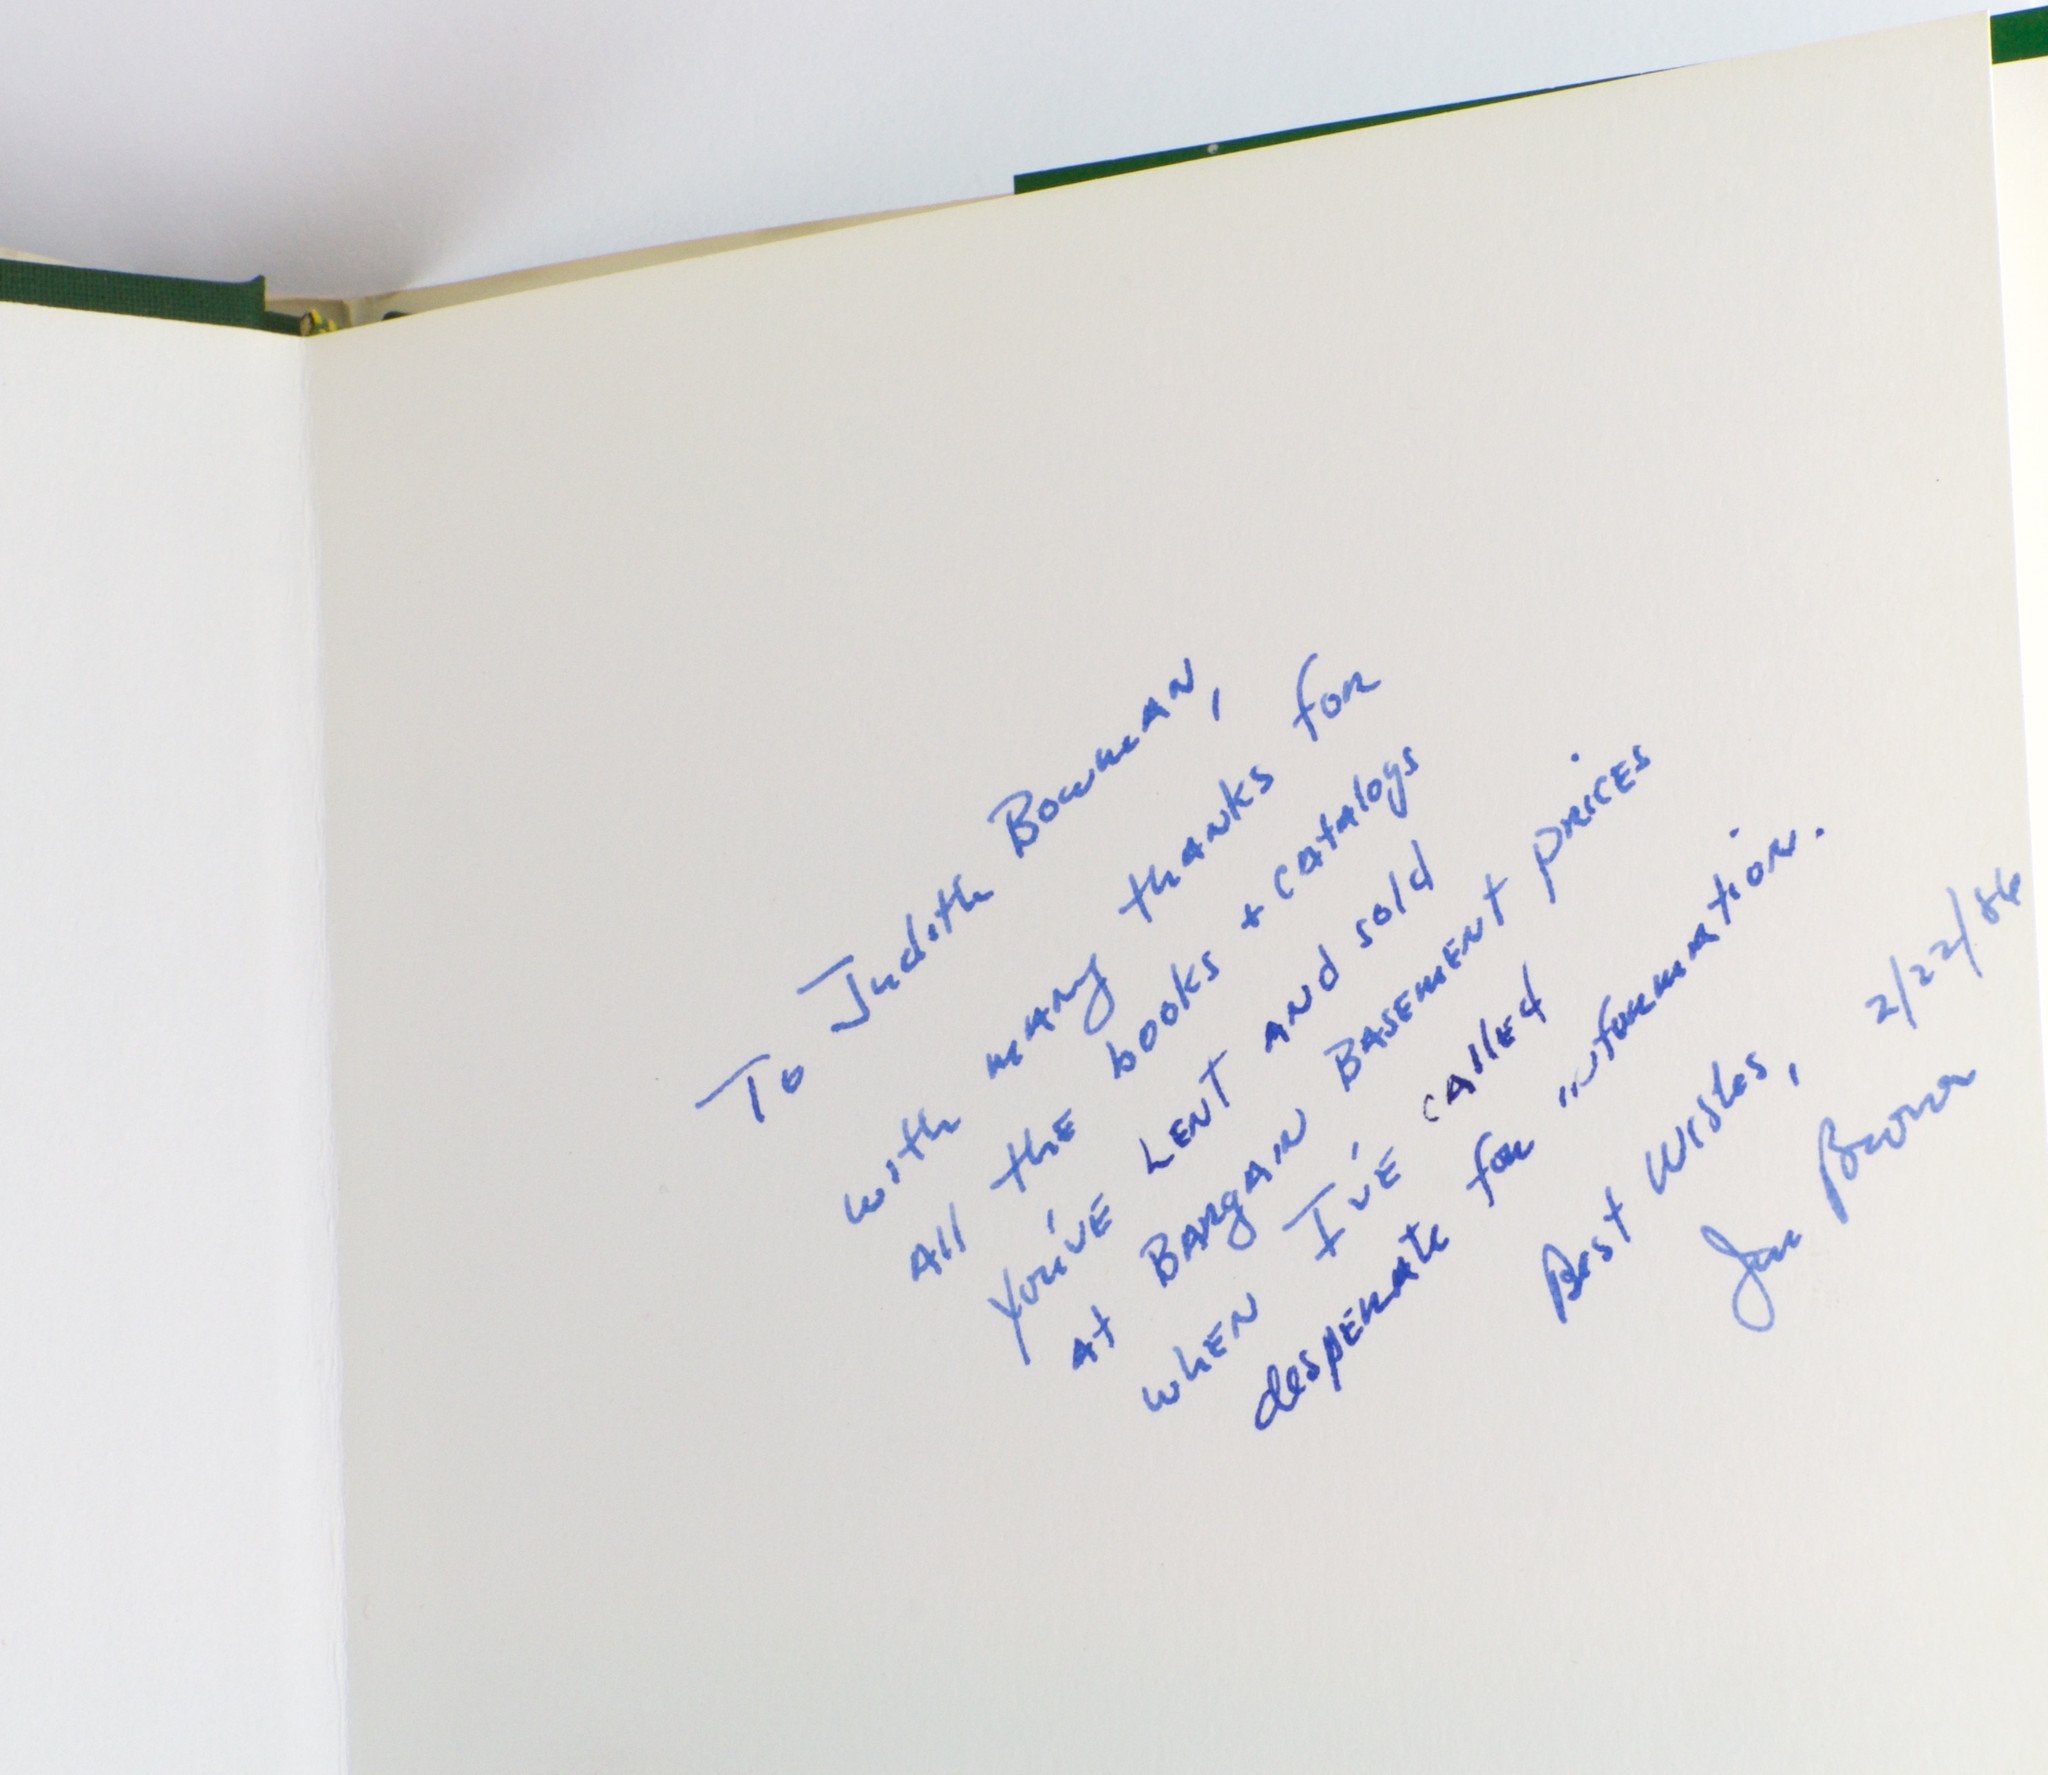 To Judith Bowman,
with many thanks for
All the books + catalogs
You've Lent and sold
at Bargan Basement prices
when I've called
desperate for information.
Best Wishes, 2/22/86
Brown